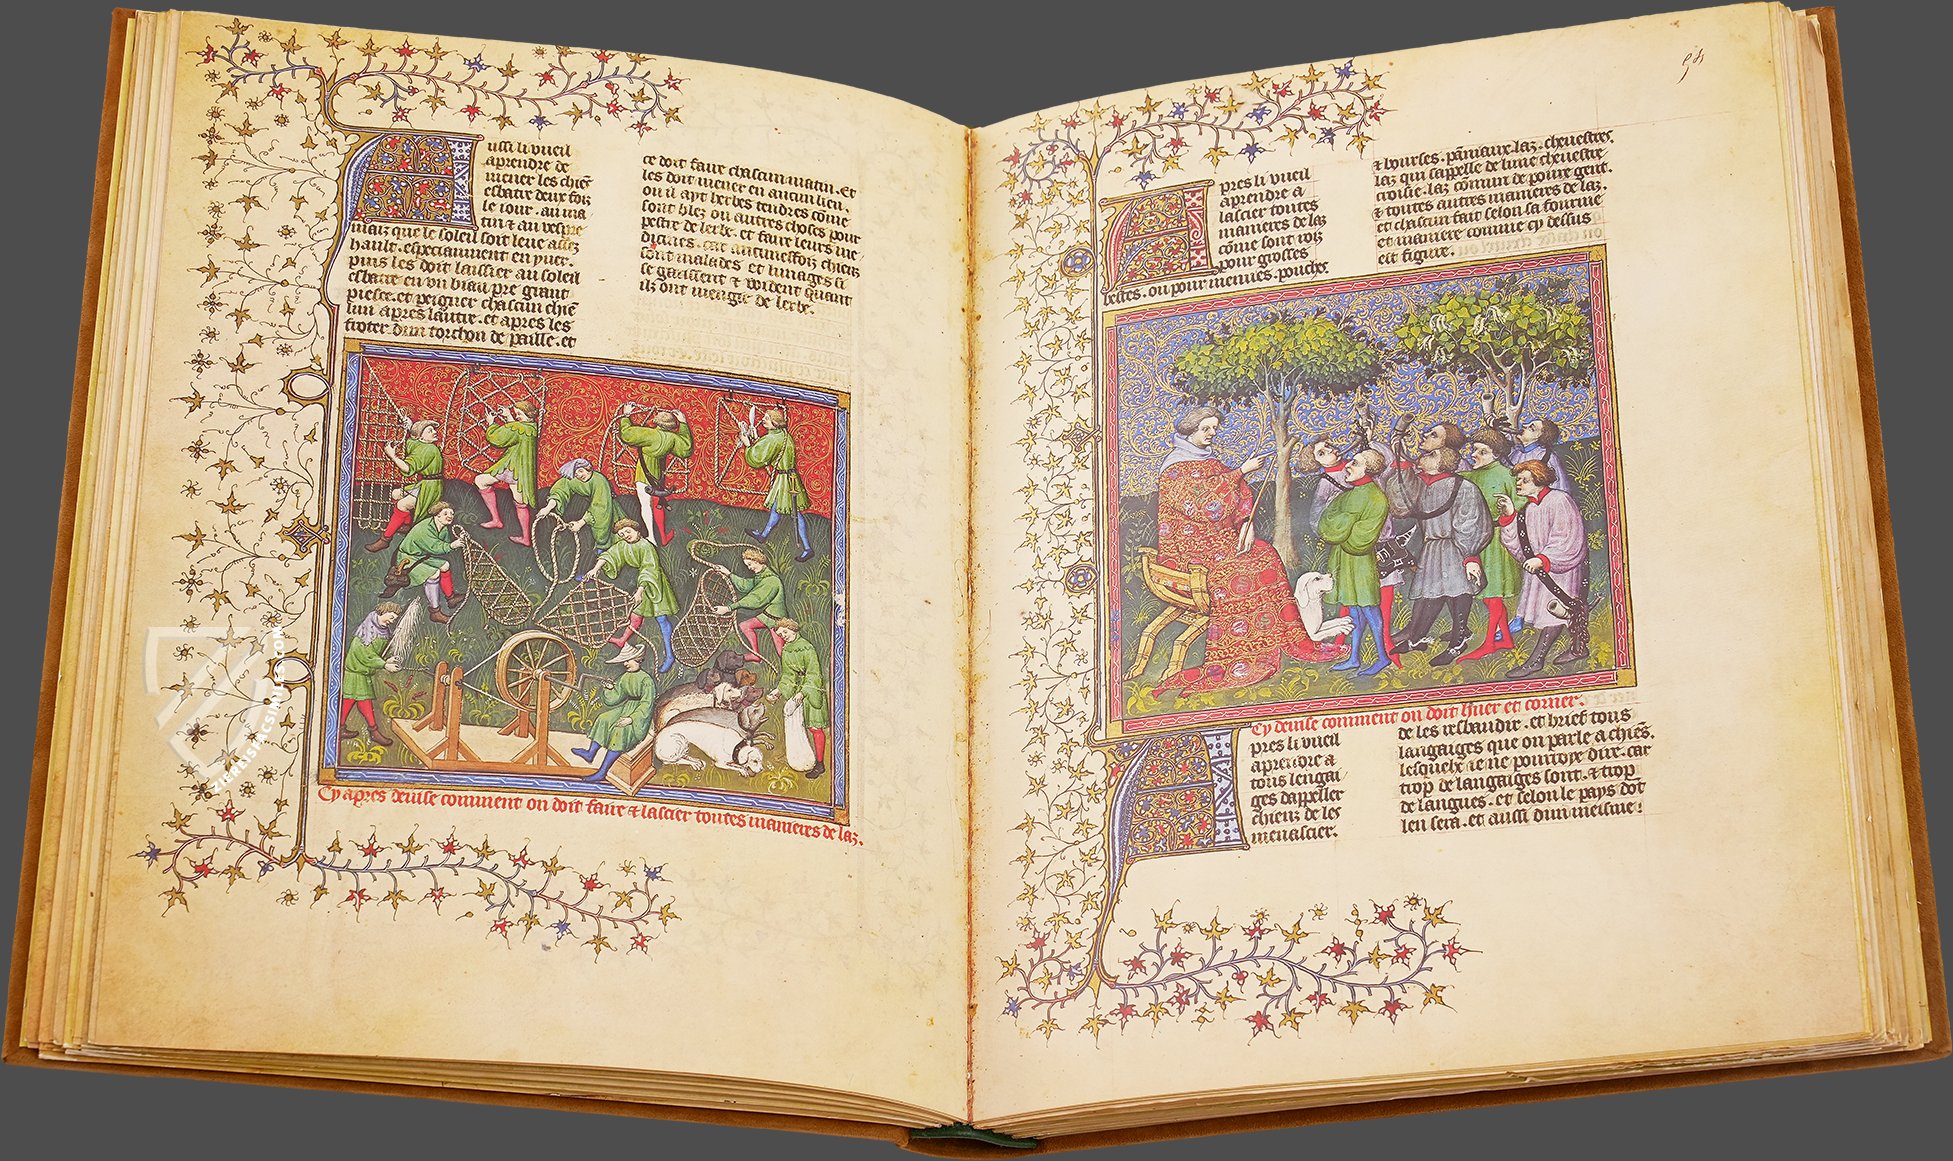 ussi li vueil
aprendre de
mener les chiēs
esbatre deux foiz
le iour. au ma
tin & au vespre
maiz que le soleil soit leue assez
hault. especiaument en yuer.
puis les doit laissier au soleil
esbatre en un biau pre grant
piesce. et peigner chascun chiē
lun apres lautre. et apres les
froter dun torchon de paille. et
ce doit faire chascun matin. Et
les doit mener en aucun lieu.
ou il ayt herbes tendres cōme
sont blez ou autres choses pour
pestre de lerbe. et faire leurs me
dicines. car aucuneffoiz chiens
sont malades et mages si
se garissent & voident quant
ilz ont mengie de lerbe.
Cy apres deuise comment on doit faire & lascier toutes manieres de laz.
pres li vueil
aprendre a
lascier toutes
manieres de laz
cōme sont roiz
pour grosses
bestes. ou pour menues. pouches
& bourses. pāniaux. laz. cheuestres.
laz qui sappelle de lune cheuestre
croisie. laz cōmun de poure gent.
& toutes autres manieres de laz.
et chascun fait selon sa fourme
et maniere comme cy dessus
est figure.
Cy deuise comment on doit huer et corner.
pres li vueil
aprendre a
tous lengai
ges dappeller
chienz de les
menascier.
de les resbaudir. et brief tous
langaiges que on parle a chiēs.
lesquelx ie ne pourroye dire. car
trop de langaiges sont. & trop
de langues. et selon le pays dōt
len sera. et aussi dun mesme
ZIEREISFACSIMILES.COM